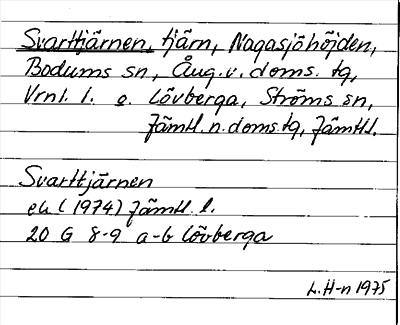 Svarttjärnen, tjärn, Nagasjöhöjden,
Bodums sn, Ång.v. doms. tg,
Vrnl. l. o. Lövberga, Ströms sn,
Jämtl. n. doms. tg, Jämtl.
Svarttjärnen
ek (1974) Jämtl. l.
20 G 8-9 a-b Lövberga
L. H-n 1975